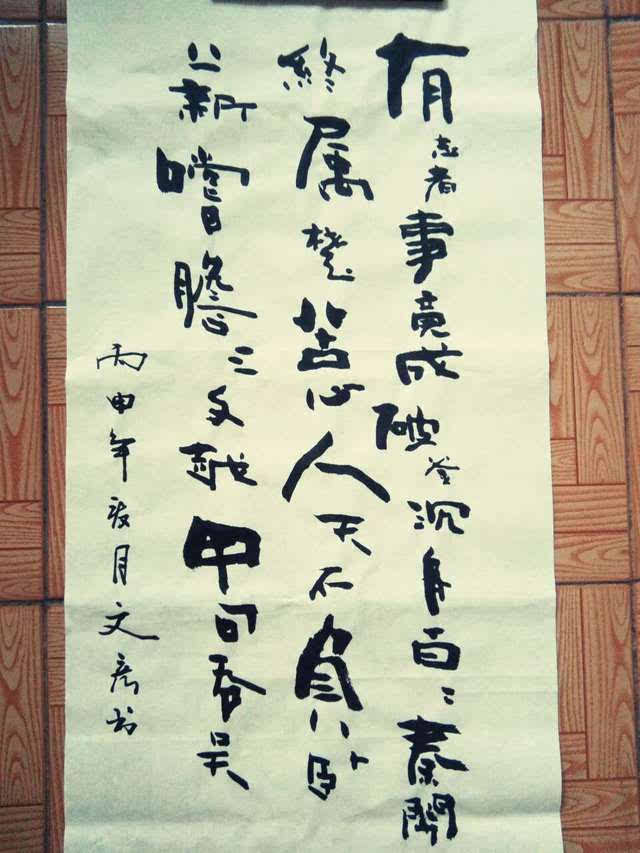 有志者事竟成破釜沉舟百二秦關
終属楚苦心人天不負臥
薪嚐膽三千越甲可吞吳
丙申年月文彦书